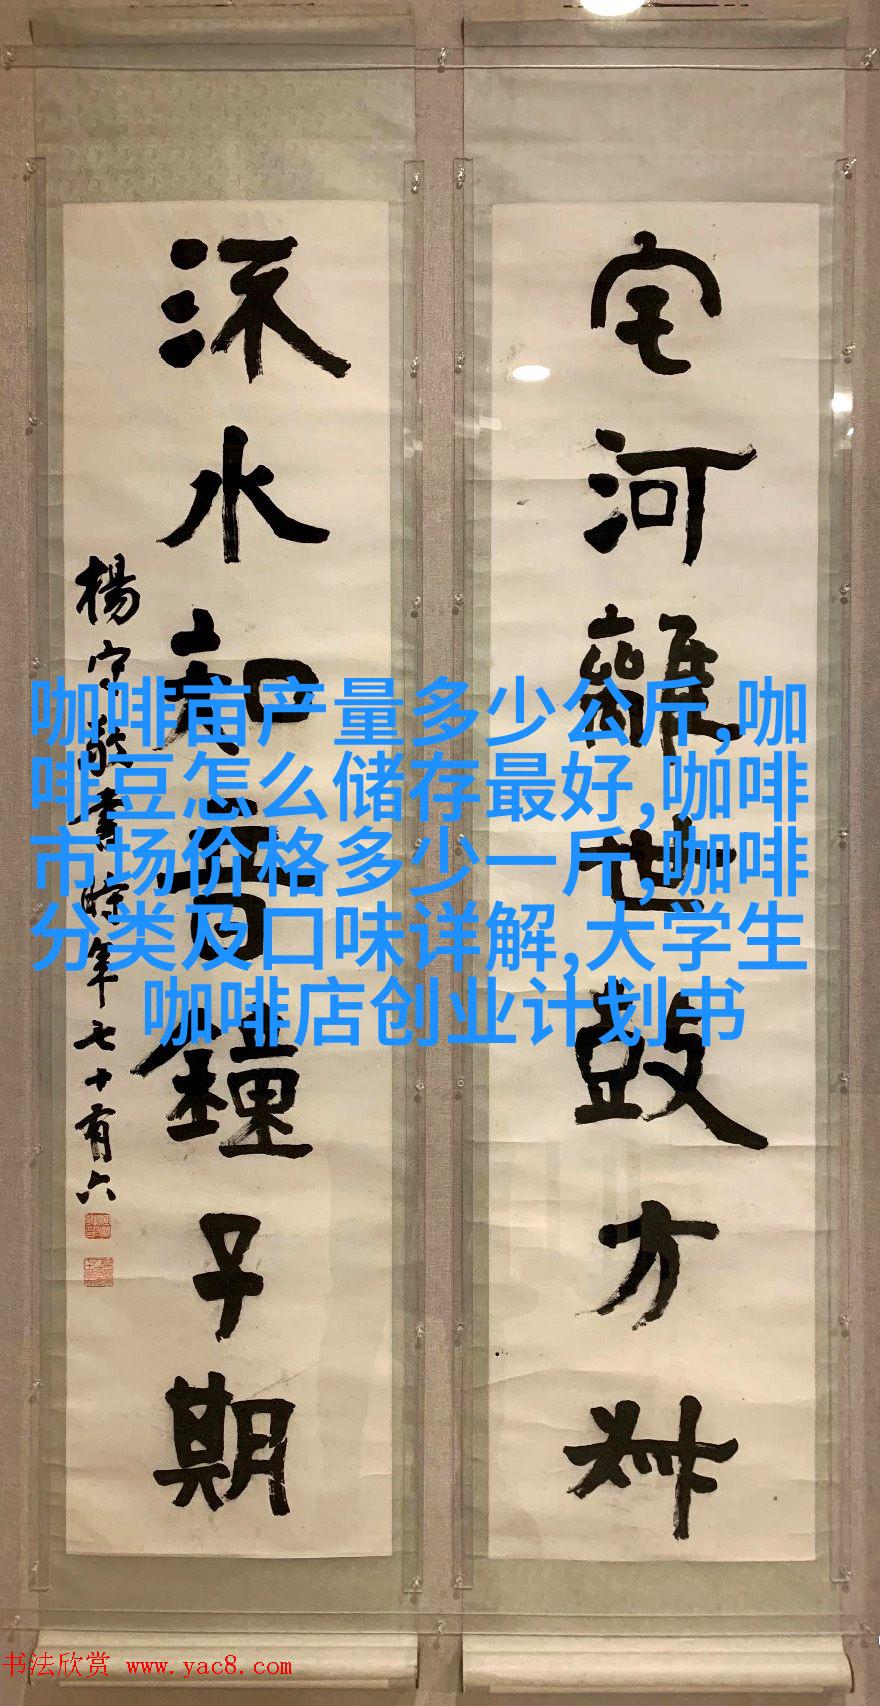 宅河離世鼓方叔
沠水知音鐘子期
楊守敬書時年七十有六
咖啡亩产量多少公斤,咖
啡豆怎么储存最好,咖啡
市场价格多少一斤,咖啡
分类及口味详解,大学生
咖啡店创业计划书
书法欣赏 www.yac8.com